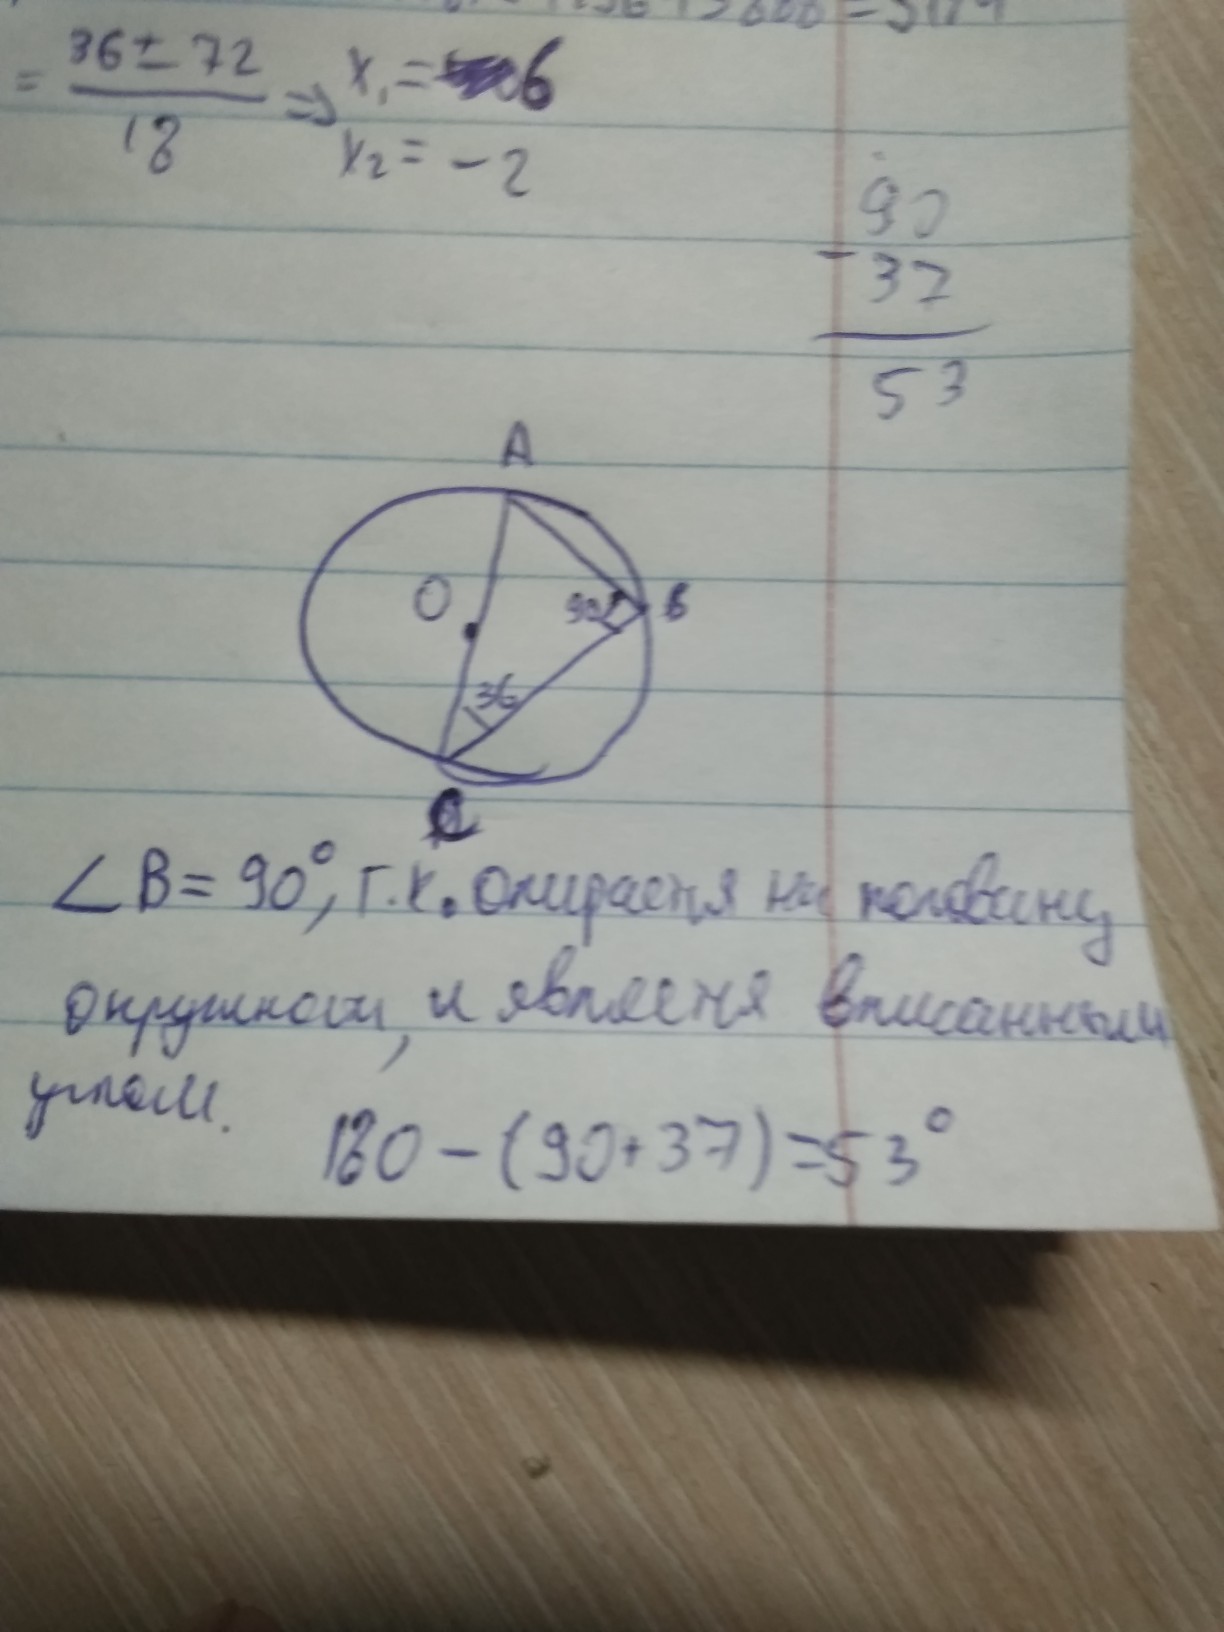 = 36 ± 72 / 18 ⇒ x₁ = 6
x₂ = -2
90
- 37
53
A
O
90°
B
36
C
∠B = 90°, т.к. опирается на половину
окружности, и является вписанным
углом.
180 - (90+37) = 53°